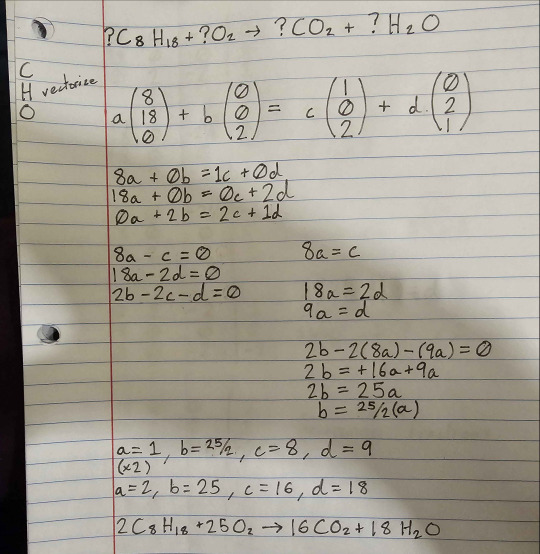 ?C8H18 + ?O2 → ?CO2 + ?H2O
C
H vectorize
O
a(8 18 0) + b(0 0 2) = c(1 0 2) + d.(0 2 1)
8a + 0b = 1c + 0d
18a + 0b = 0c + 2d
0a + 2b = 2c + 1d
8a - c = 0
18a - 2d = 0
2b - 2c - d = 0
8a = c
18a = 2d
9a = d
2b - 2(8a) - (9a) = 0
2b = +16a + 9a
2b = 25a
b = 25/2(a)
a = 1, b = 25/2, c = 8, d = 9
(x2)
a = 2, b = 25, c = 16, d = 18
2C8H18 + 25O2 → 16CO2 + 18H2O